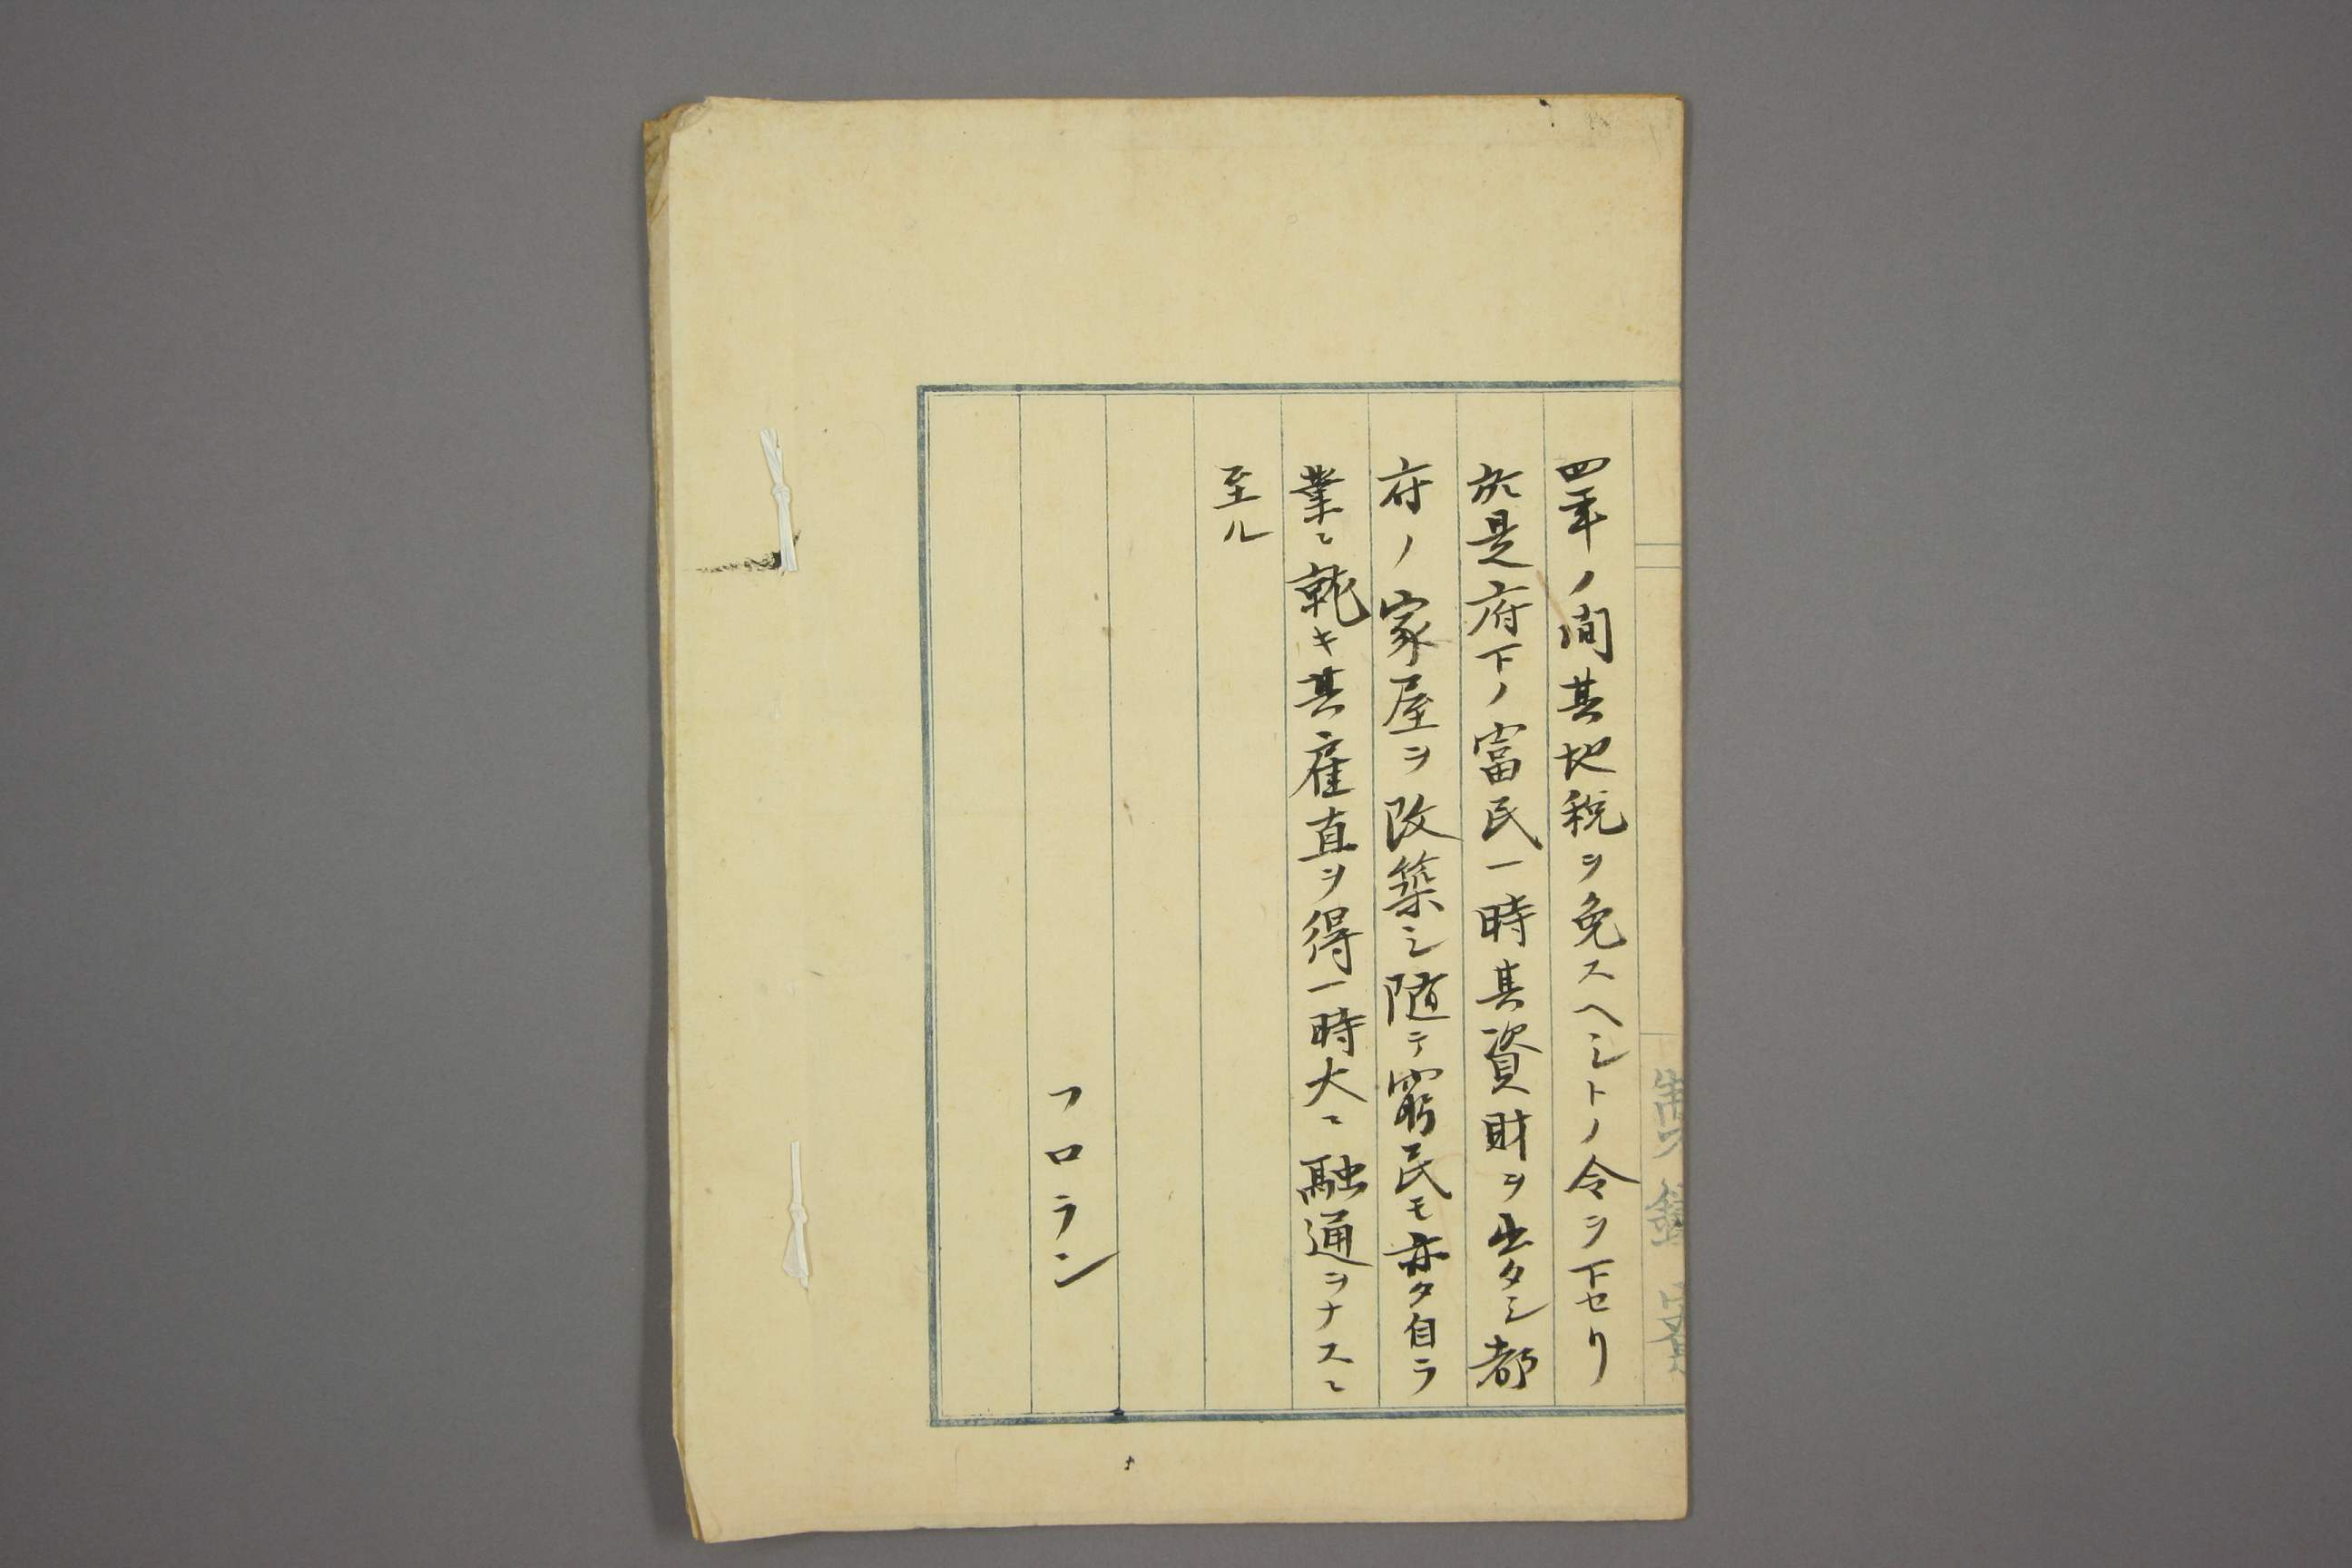 四年ノ間其地税ヲ免スヘシトノ令ヲ下セリ
於是府下ノ富民一時其資財ヲ出タシ都
府ノ家屋ヲ改築シ随テ窮民モ亦タ自ラ
業ニ就キ其雇直ヲ得一時大ニ融通ヲナスニ
至ル
フロラン